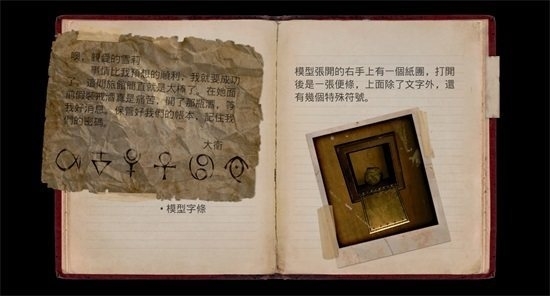 嗯，親愛的雪莉
事情比我預想的順利，我就要成功
了，這間旅館簡直就是太棒了。在她面
前假裝戒酒真是痛苦，開了那瓶酒，等
我好消息。保管好我們的帳本，記住我
們的密碼。
大衛
•模型字條
模型張開的右手上有一個紙團，打開
後是一張便條，上面除了文字外，還
有幾個特殊符號。